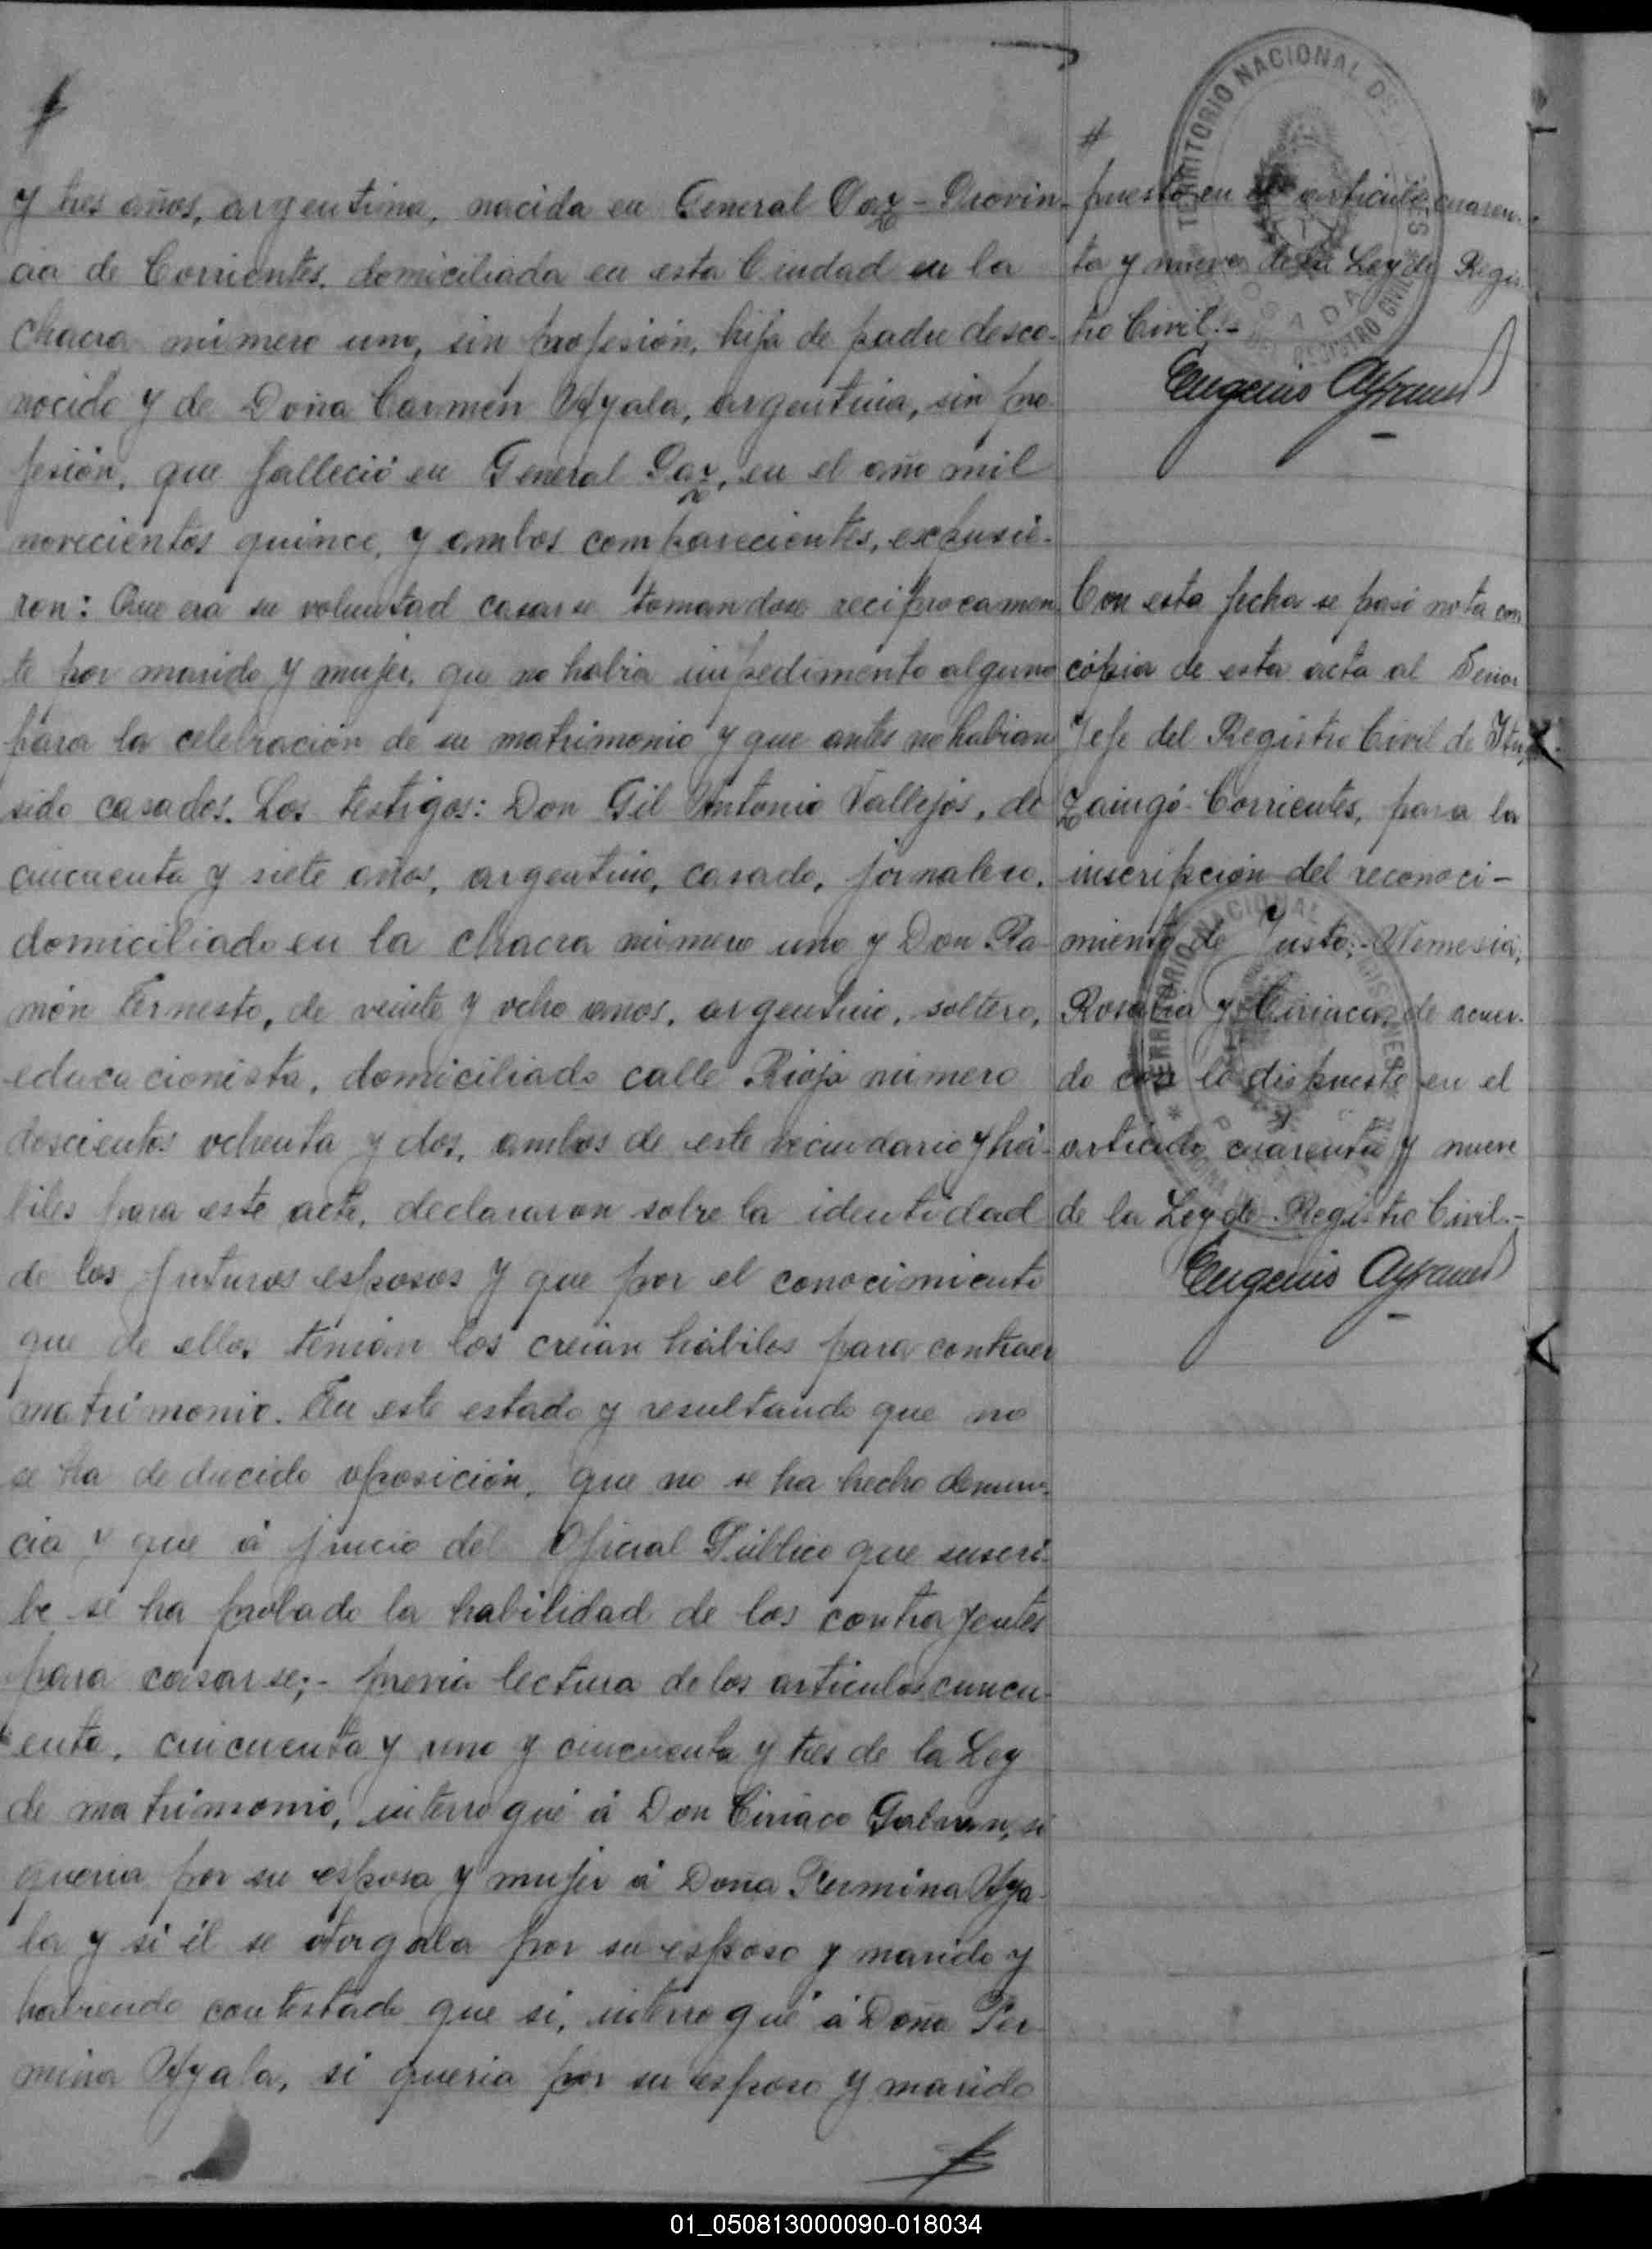 y tres años, argentina, nacida en General Paz - Provin-
cia de Corrientes, domiciliada en esta Ciudad en la
chacra número uno, sin profesión, hija de padre desco-
nocido y de Doña Carmen Ayala, argentina, sin pro-
fesión, que falleció en General Paz, en el año mil
novecientos quince, y ambos comparecientes, expusie-
ron: Que era su voluntad casarse tomandose reciprocamen
te por marido y mujer, que no habia impedimento alguno
para la celebración de su matrimonio y que antes no habian
sido casados. Los testigos: Don Gil Antonio Vallejos, de
cincuenta y siete años, argentino, casado, jornalero,
domiciliado en la chacra número uno y Don Ra-
món Ernesto, de veinte y ocho años, argentino, soltero,
educacionista, domiciliado calle Rioja número
doscientos ochenta y dos, ambos de este vecindario y há-
biles para este acto, declararon sobre la identidad
de los futuros esposos y que por el conocimiento
que de ellos tenian los creian hábiles para contraer
matrimonio. En este estado y resultando que no
se ha deducido oposición, que no se ha hecho denun-
cia y que á juicio del Oficial Público que suscri-
be se ha probado la habilidad de los contrayentes
para casarse;- previa lectura de los articulos cincu-
enta, cincuenta y uno y cincuenta y tres de la Ley
de matrimonio, interrogué á Don Ciriaco Galvan, si
queria por su esposa y mujer á Doña Fermina Aya-
la y si él se otorgaba por su esposo y marido y
habiendo contestado que si, interrogué á Doña Fer-
mina Ayala, si queria por su esposo y marido
#
puesto en el articulo cuaren-
ta y nueve de la Ley de Regis-
tro Civil.-
Eugenio
Con esta fecha se pasó nota con
cópia de esta acta al Señor
Jefe del Registro Civil de Itu-
zaingó-Corrientes, para la
inscripción del reconoci-
miento de Justo, Nemesia,
Rosaria y Ciriaca, de acuer-
do con lo dispuesto en el
articulo cuarenta y nueve
de la Ley de Registro Civil.-
Eugenio
TERRITORIO NACIONAL DE
POSADAS
REGISTRO CIVIL
TERRITORIO NACIONAL MISIONES
01_050813000090-018034